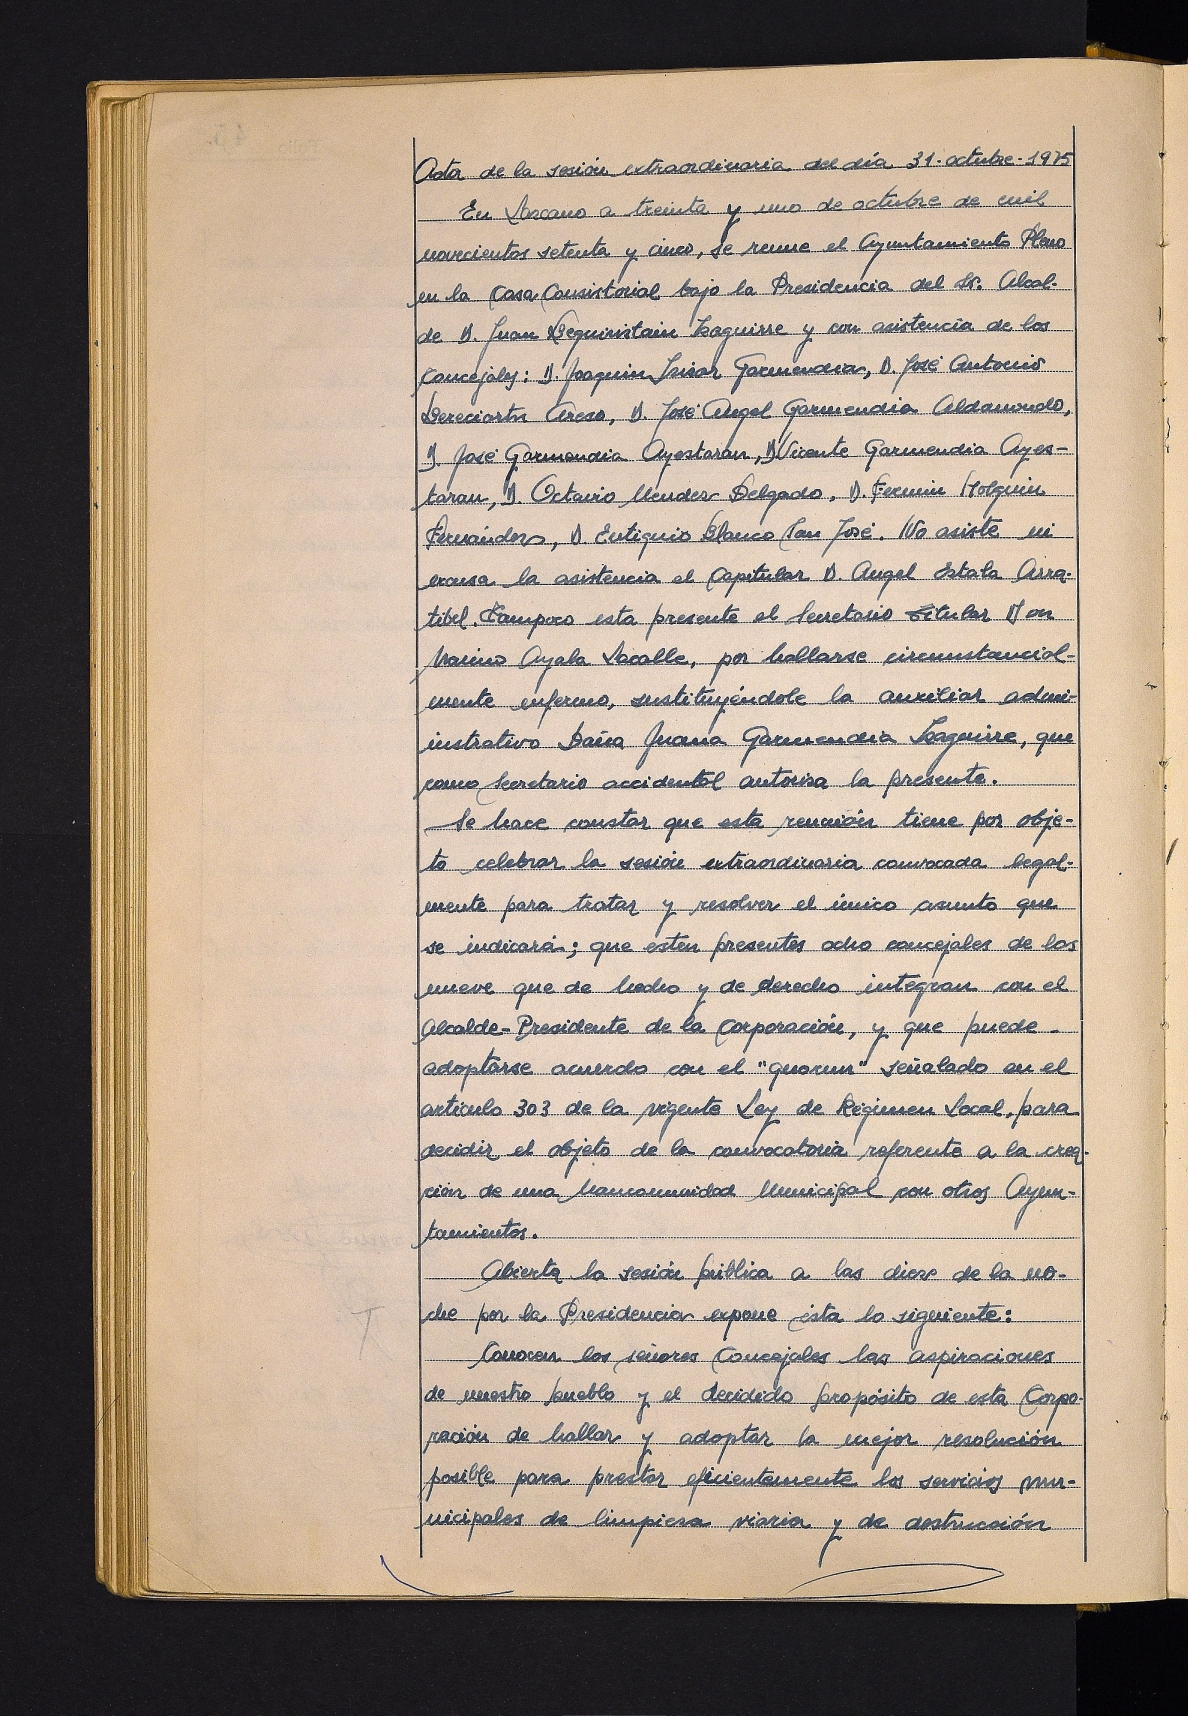 Acta de la sesión extraordinaria del día 31-octubre-1975
En Lazcano a treinta y uno de octubre de mil
novecientos setenta y cinco, se reune el Ayuntamiento Pleno
en la Casa Consistorial bajo la Presidencia del Sr. Alcal-
de D. Juan Beguiristain Izaguirre y con asistencia de los
Concejales: D. Joaquin Garmendia, D. José Antonio
Bereciartu Areso, D. José Angel Garmendia Aldanondo,
D. José Garmendia Ayestaran, D. Vicente Garmendia Ayes-
taran, D. Octavio Mendez Delgado, D. Fermin Holguin
Fernández, D. Eutiquio Blanco San José. No asiste ni
excusa la asistencia el Capitular D. Angel Estala Arra-
tibel. Tampoco esta presente el Secretario titular Don
Marino Ayala Lacalle, por hallarse circunstancial-
mente enfermo, sustituyéndole la auxiliar admi-
nistrativo Doña Juana Garmendia Izaguirre, que
como Secretario accidental autoriza la presente.
Se hace constar que esta reunión tiene por obje-
to celebrar la sesión extraordinaria convocada legal-
mente para tratar y resolver el único asunto que
se indicará; que esten presentes ocho concejales de los
nueve que de hecho y de derecho integran con el
Alcalde-Presidente de la Corporación, y que puede
adoptarse acuerdo con el "quorum" señalado en el
artículo 303 de la vigente Ley de Régimen Local, para
decidir el objeto de la convocatoria referente a la crea-
ción de una Mancomunidad Municipal con otros Ayun-
tamientos.
Abierta la sesión pública a las diez de la no-
che por la Presidencia expone ésta lo siguiente:
Conocen los señores Concejales las aspiraciones
de nuestro pueblo y el decidido propósito de esta Corpo-
ración de hallar y adoptar la mejor resolución
posible para prestar eficientemente los servicios mu-
nicipales de limpieza viaria y de destrucción